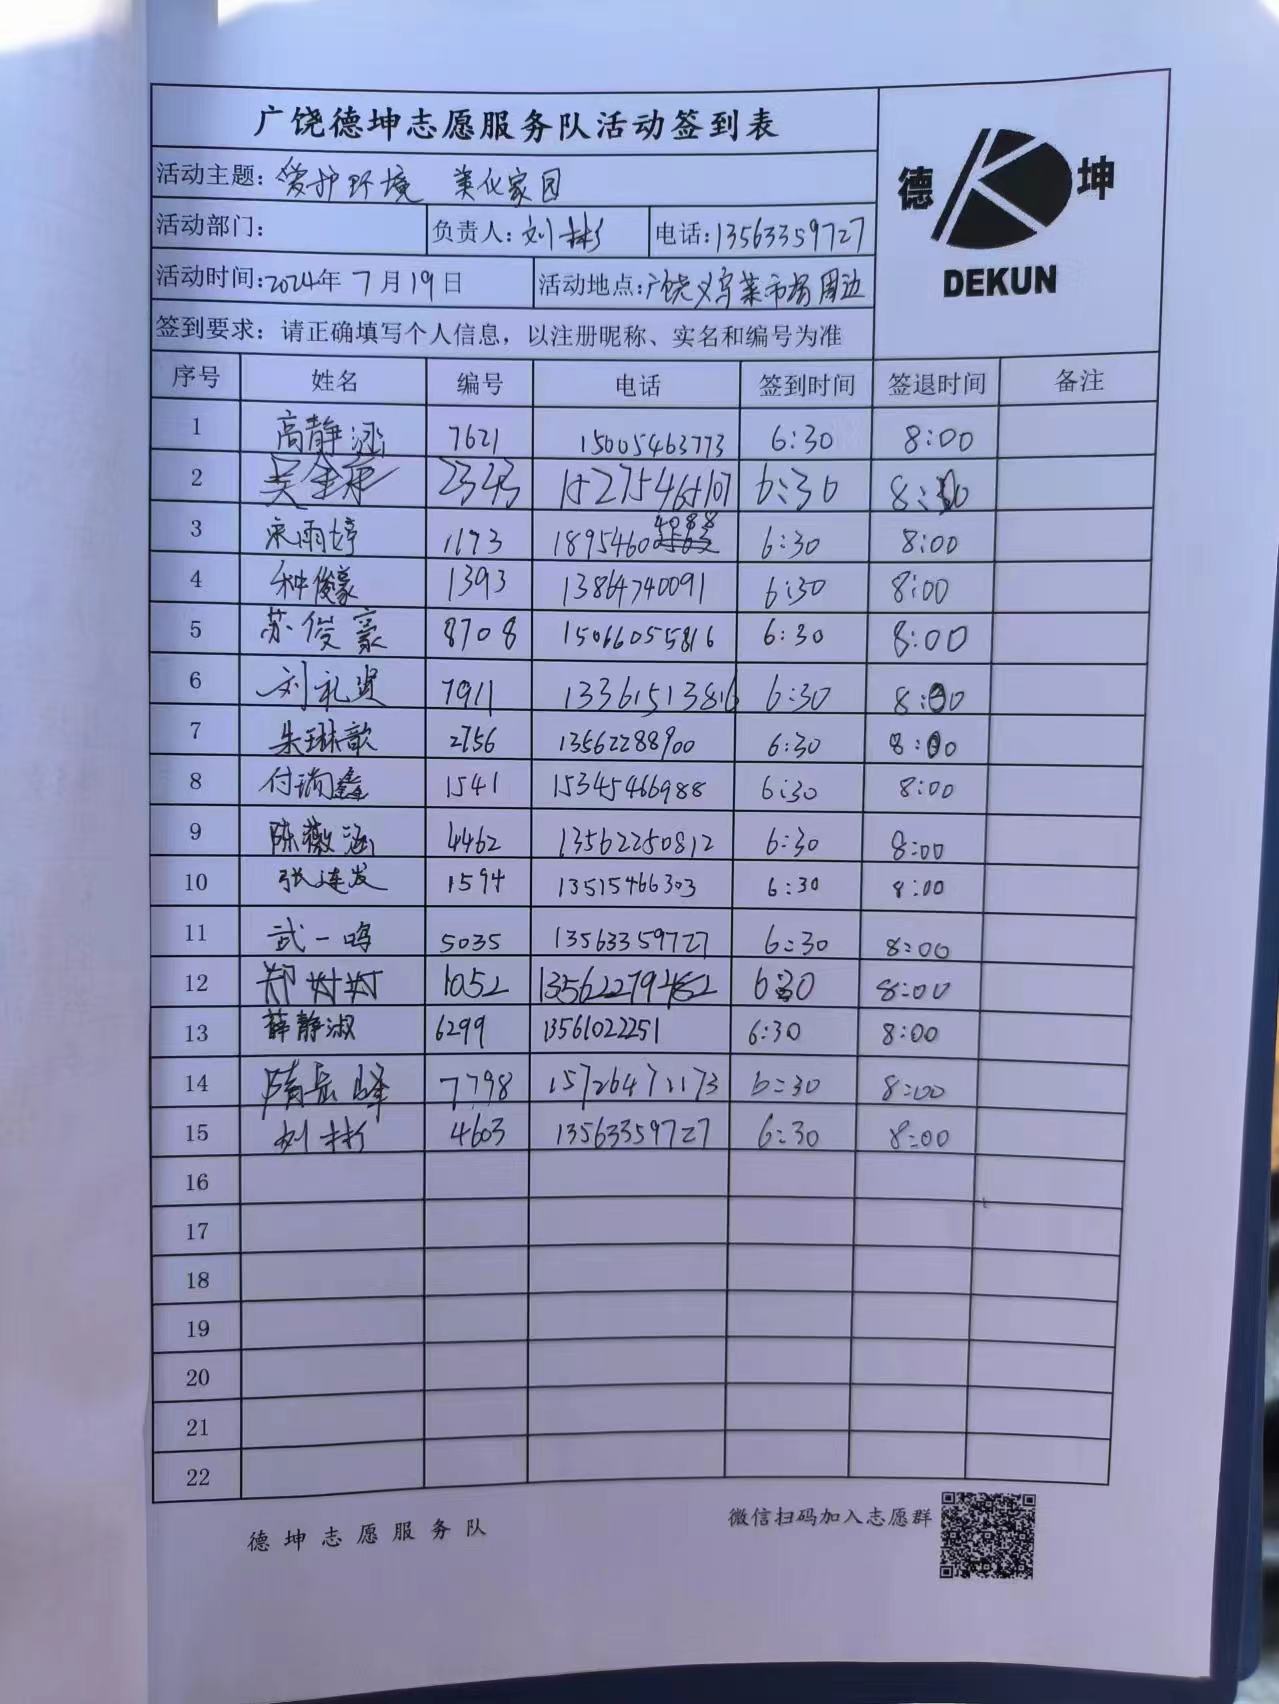 广饶德坤志愿服务队活动签到表
德 坤
DEKUN
活动主题: 爱护环境 美化家园
活动部门: 负责人: 刘彬 电话: 13563359727
活动时间: 2024年 7月19日 活动地点: 广饶义乌菜市场周边
签到要求: 请正确填写个人信息, 以注册昵称、实名和编号为准
序号 姓名 编号 电话 签到时间 签退时间 备注
1 高静涵 7621 15005463773 6:30 8:00
2 吴金 2343 15275465107 6:30 8:30
3 宋雨婷 1173 18954604088 6:30 8:00
4 种俊豪 1393 13864740091 6:30 8:00
5 苏俊豪 8708 15066055816 6:30 8:00
6 刘礼贤 7911 13361513816 6:30 8:00
7 朱琳歆 2756 13562288900 6:30 8:00
8 付瑞鑫 1541 15345466988 6:30 8:00
9 陈薇涵 4462 13562250812 6:30 8:00
10 张连发 1594 13515466303 6:30 8:00
11 武一鸣 5035 13563359727 6:30 8:00
12 郑对对 1052 6:30 8:00
13 薛静淑 6299 13561022251 6:30 8:00
14 隋岳峰 7798 15726471173 6:30 8:00
15 刘彬 4603 13563359727 6:30 8:00
16
17
18
19
20
21
22
德坤志愿服务队 微信扫码加入志愿群